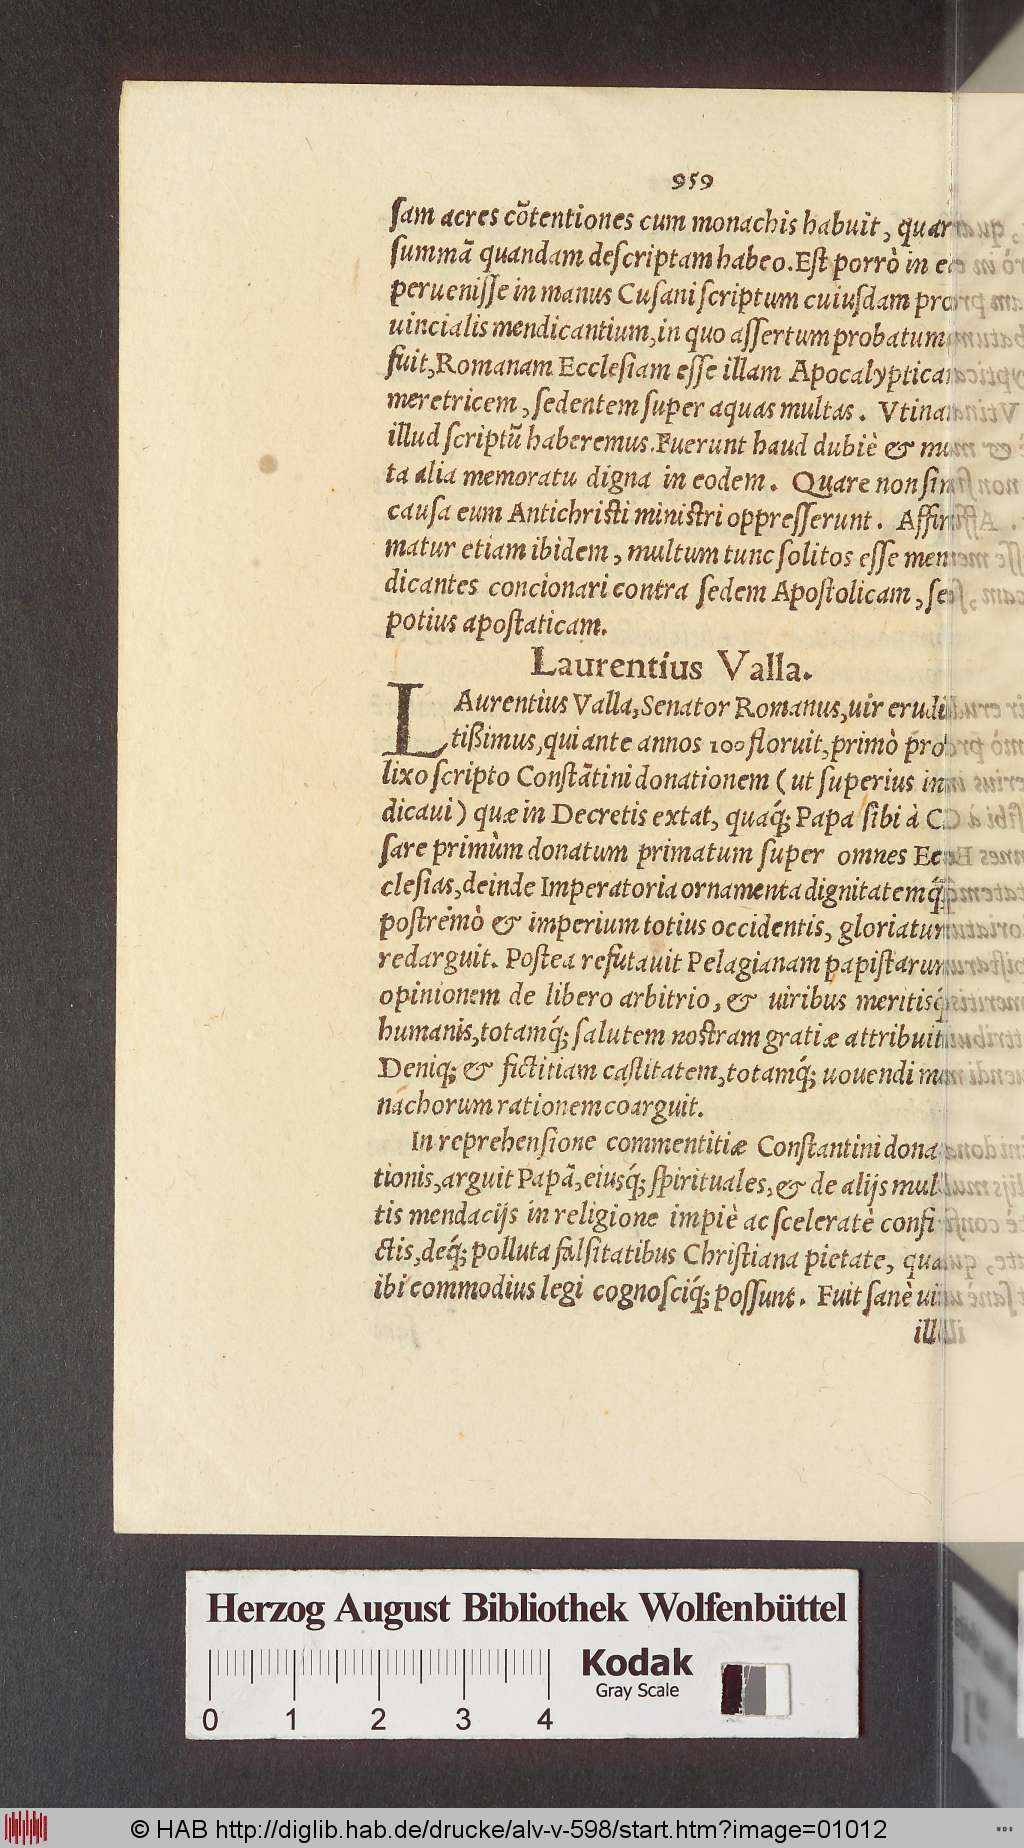 959
ſam acres cõtentiones cum monachis habuit, quar
ſummã quandam deſcriptam habeo. Eſt porrò in e
peruenisſe in manus Cuſani ſcriptum cuiuſdam pro
uincialis mendicantium, in quo asſertum probatum
fuit, Romanam Eccleſiam esſe illam Apocalyptica
meretricem, ſedentem ſuper aquas multas. Vtina
illud ſcriptũ haberemus. Fuerunt haud dubiè & mu
ta alia memoratu digna in eodem. Quare non ſin
cauſa eum Antichriſti miniſtri oppresſerunt. Affir
matur etiam ibidem, multum tunc ſolitos esſe men
dicantes concionari contra ſedem Apoſtolicam, ſe
potius apoſtaticam.
Laurentius Valla.
LAurentius Valla, Senator Romanus, uir erudi
tißimus, qui ante annos 100 floruit, primò pro
lixo ſcripto Conſtãtini donationem (ut ſuperius in
dicaui) quæ in Decretis extat, quaq́; Papa ſibi à C
ſare primùm donatum primatum ſuper omnes Ec
cleſias, deinde Imperatoria ornamenta dignitatemq́;
poſtremò & imperium totius occidentis, gloriatur
redarguit. Poſtea refutauit Pelagianam papiſtarum
opinionem de libero arbitrio, & uiribus meritisq́;
humanis, totamq́; ſalutem noſtram gratiæ attribuit
Deniq; & fictitiam caſtitatem, totamq́; uouendi m
nachorum rationem coarguit.
In reprehenſione commentitiæ Conſtantini dona
tionis, arguit Papã, eiusq́; ſpirituales, & de alijs mul
tis mendacijs in religione impiè ac ſceleratè confi
ctis, deq́; polluta falſitatibus Chriſtiana pietate, quæ
ibi commodius legi cognoſciq́; posſunt. Fuit ſanè ui
ille
Herzog August Bibliothek Wolfenbüttel
Kodak
Gray Scale
0 1 2 3 4
© HAB http://diglib.hab.de/drucke/alv-v-598/start.htm?image=01012